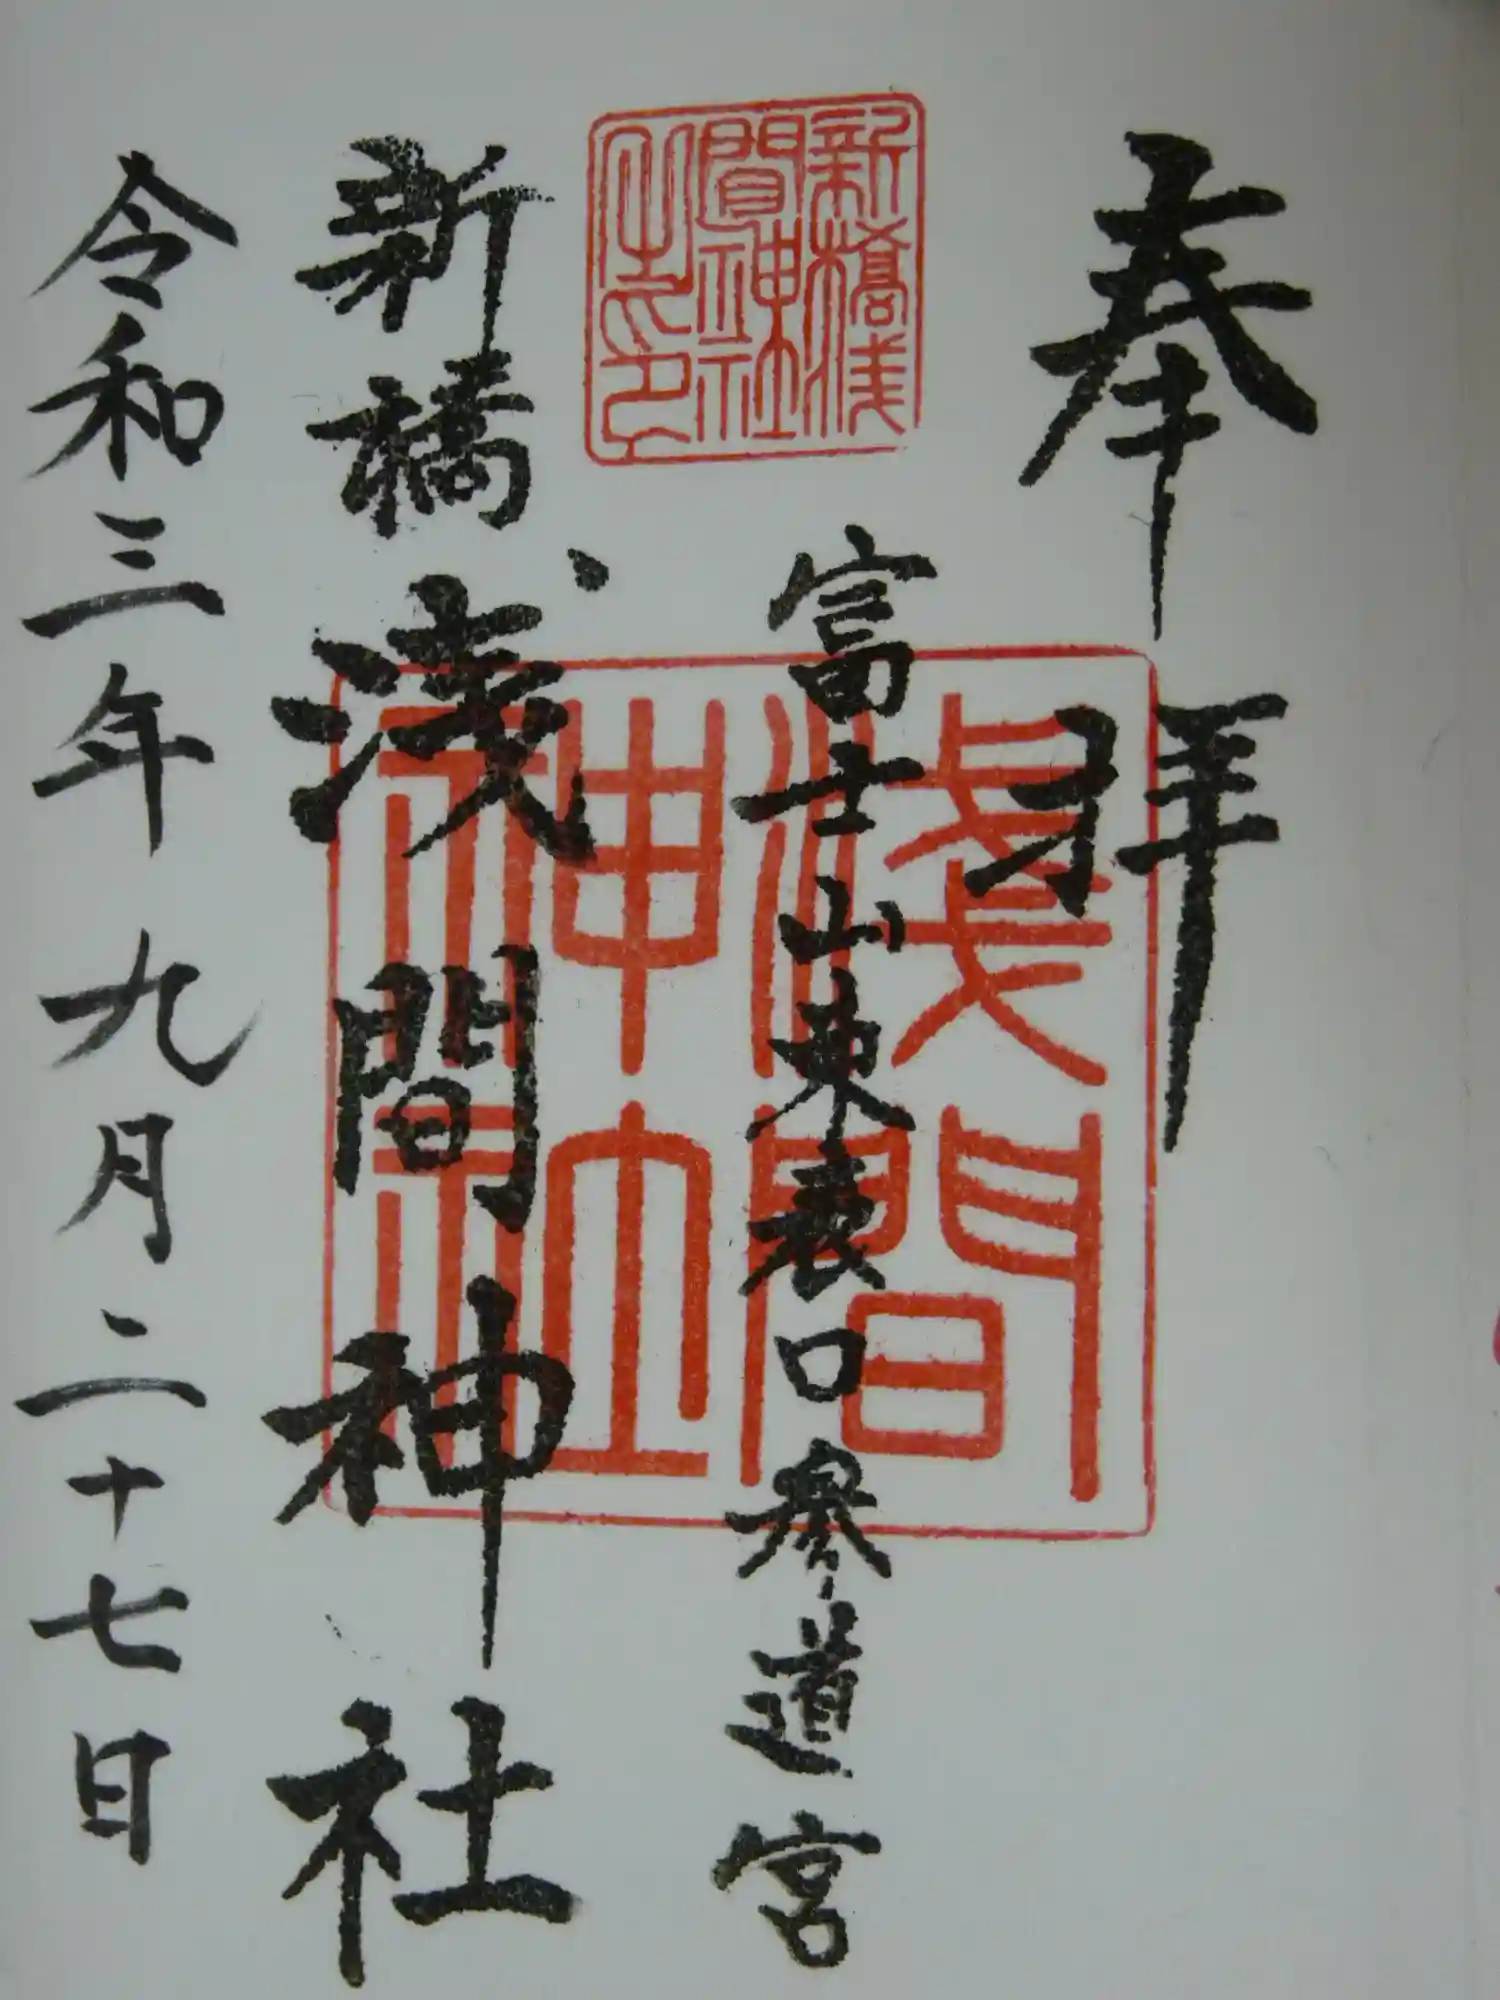 奉拝
富士山東表口参道宮
新橋浅間神社之印
浅間神社
新橋浅間神社
令和三年九月二十七日